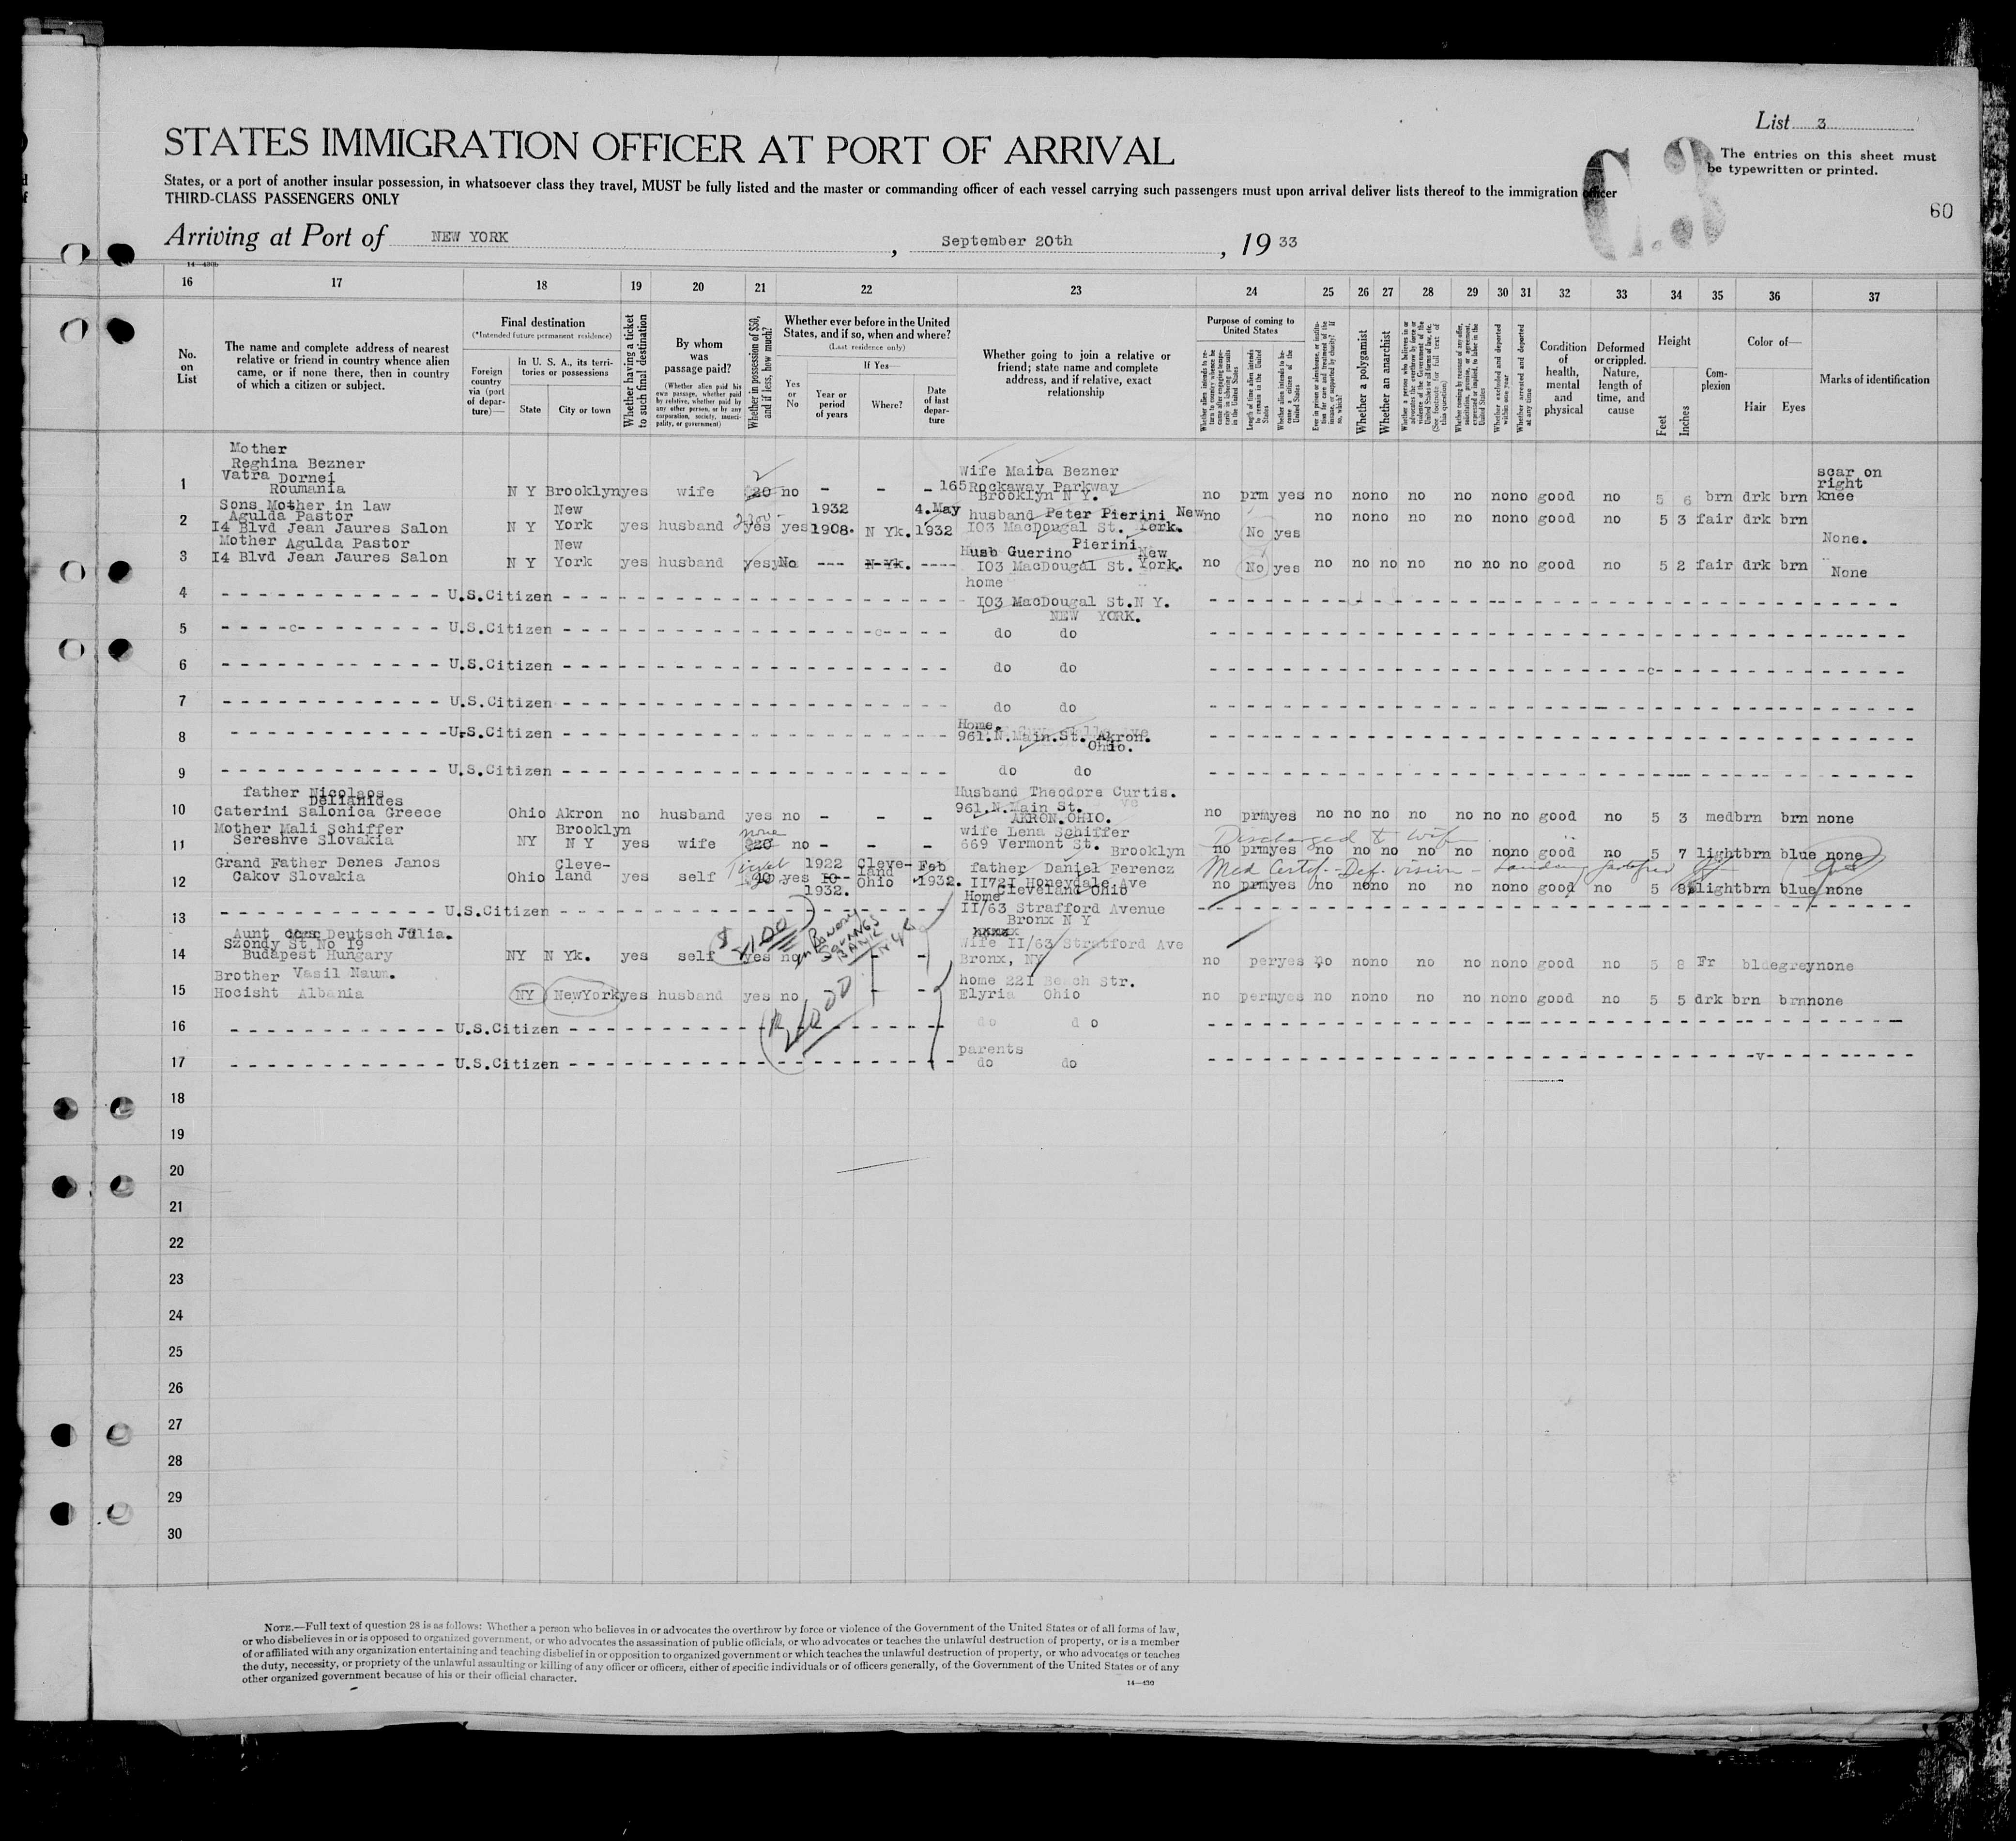 List 3
STATES IMMIGRATION OFFICER AT PORT OF ARRIVAL
The entries on this sheet must
be typewritten or printed.
States, or a port of another insular possession, in whatsoever class they travel, MUST be fully listed and the master or commanding officer of each vessel carrying such passengers must upon arrival deliver lists thereof to the immigration officer
THIRD-CLASS PASSENGERS ONLY
C.3
60
Arriving at Port of NEW YORK, September 20th, 1933
16 17 18 19 20 21 22 23 24 25 26 27 28 29 30 31 32 33 34 35 36 37
No. on List
The name and complete address of nearest relative or friend in country whence alien came, or if none there, then in country of which a citizen or subject.
Final destination
(*Intended future permanent residence)
Foreign country via (port of departure)—
In U. S. A., its territories or possessions
State
City or town
Whether having a ticket to such final destination
By whom was passage paid?
(Whether alien paid his own passage, whether paid by relative, whether paid by any other person, or by any corporation, society, municipality, or government)
Whether in possession of $50, and if less, how much?
Whether ever before in the United States, and if so, when and where?
(Last residence only)
Yes or No
If Yes—
Year or period of years
Where?
Date of last departure
Whether going to join a relative or friend; state name and complete address, and if relative, exact relationship
Purpose of coming to United States
Whether a polygamist
Whether an anarchist
Condition of health, mental and physical
Deformed or crippled. Nature, length of time, and cause
Height
Feet
Inches
Complexion
Color of—
Hair
Eyes
Marks of identification
1 Mother Reghina Bezner Vatra Dornei Roumania N Y Brooklyn yes wife 20 no - - - Wife Bezner 165 Rockaway Parkway Brooklyn N Y. no prm yes no no no no no no no good no 5 6 brn drk brn scar on right knee
2 Sons Mother in law Agulda Pastor I4 Blvd Jean Jaures Salon N Y New York yes husband yes yes 1932 1908. N Yk. 4.May 1932 husband Peter Pierini I03 MacDougal St. New York. no No yes no no no no no no no good no 5 3 fair drk brn None.
3 Mother Agulda Pastor I4 Blvd Jean Jaures Salon N Y New York yes husband yes No --- N Yk. ---- Husb Guerino Pierini I03 MacDougal St. New York. no No yes no no no no no no no good no 5 2 fair drk brn None
4 U.S.Citizen home I03 MacDougal St.N Y.
NEW YORK.
5 U.S.Citizen do do
6 U.S.Citizen do do
7 U.S.Citizen do do
8 U.S.Citizen Home. 961.N.Main.St. Akron. Ohio.
9 U.S.Citizen do do
10 father Nicolaos Delianides Caterini Salonica Greece Ohio Akron no husband yes no - - - Husband Theodore Curtis. 961.N.Main St. AKRON.OHIO. no prm yes no no no no no no no good no 5 3 med brn brn none
11 Mother Mali Schiffer Sereshve Slovakia NY Brooklyn N Y yes wife none no - - - wife Lena Schiffer 669 Vermont St. Brooklyn no prm yes no no no no no no no good no 5 7 light brn blue none
Discharged to wife
12 Grand Father Denes Janos Cakov Slovakia Ohio Cleve-land yes self 10 yes 1922 1932. Cleve-land Ohio Feb 1932. father Daniel Ferencz II72I Honeydale Ave Cleveland Ohio no prm yes no no no no no no no good no 5 8 light brn blue none
Med Certif.- Def. vision - Landing
13 U.S.Citizen Home II/63 Strafford Avenue Bronx N Y
14 Aunt Deutsch Julia. Szondy St No 19 Budapest Hungary NY N Yk. yes self yes no - - Wife II/63 Stratford Ave Bronx, NY no per yes no no no no no no no good no 5 8 Fr blde grey none
$ 1100 in Bowery Savings Bank N.Y.C
15 Brother Vasil Naum. Hocisht Albania NY NewYork yes husband yes no - - home 22I Beach Str. Elyria Ohio no perm yes no no no no no no no good no 5 5 drk brn brn none
16 U.S.Citizen do do
17 U.S.Citizen parents do do
18
19
20
21
22
23
24
25
26
27
28
29
30
NOTE.—Full text of question 28 is as follows: Whether a person who believes in or advocates the overthrow by force or violence of the Government of the United States or of all forms of law,
or who disbelieves in or is opposed to organized government, or who advocates the assassination of public officials, or who advocates or teaches the unlawful destruction of property, or is a member
of or affiliated with any organization entertaining and teaching disbelief in or opposition to organized government or which teaches the unlawful destruction of property, or who advocates or teaches
the duty, necessity, or propriety of the unlawful assaulting or killing of any officer or officers, either of specific individuals or of officers generally, of the Government of the United States or of any
other organized government because of his or their official character.
14—430